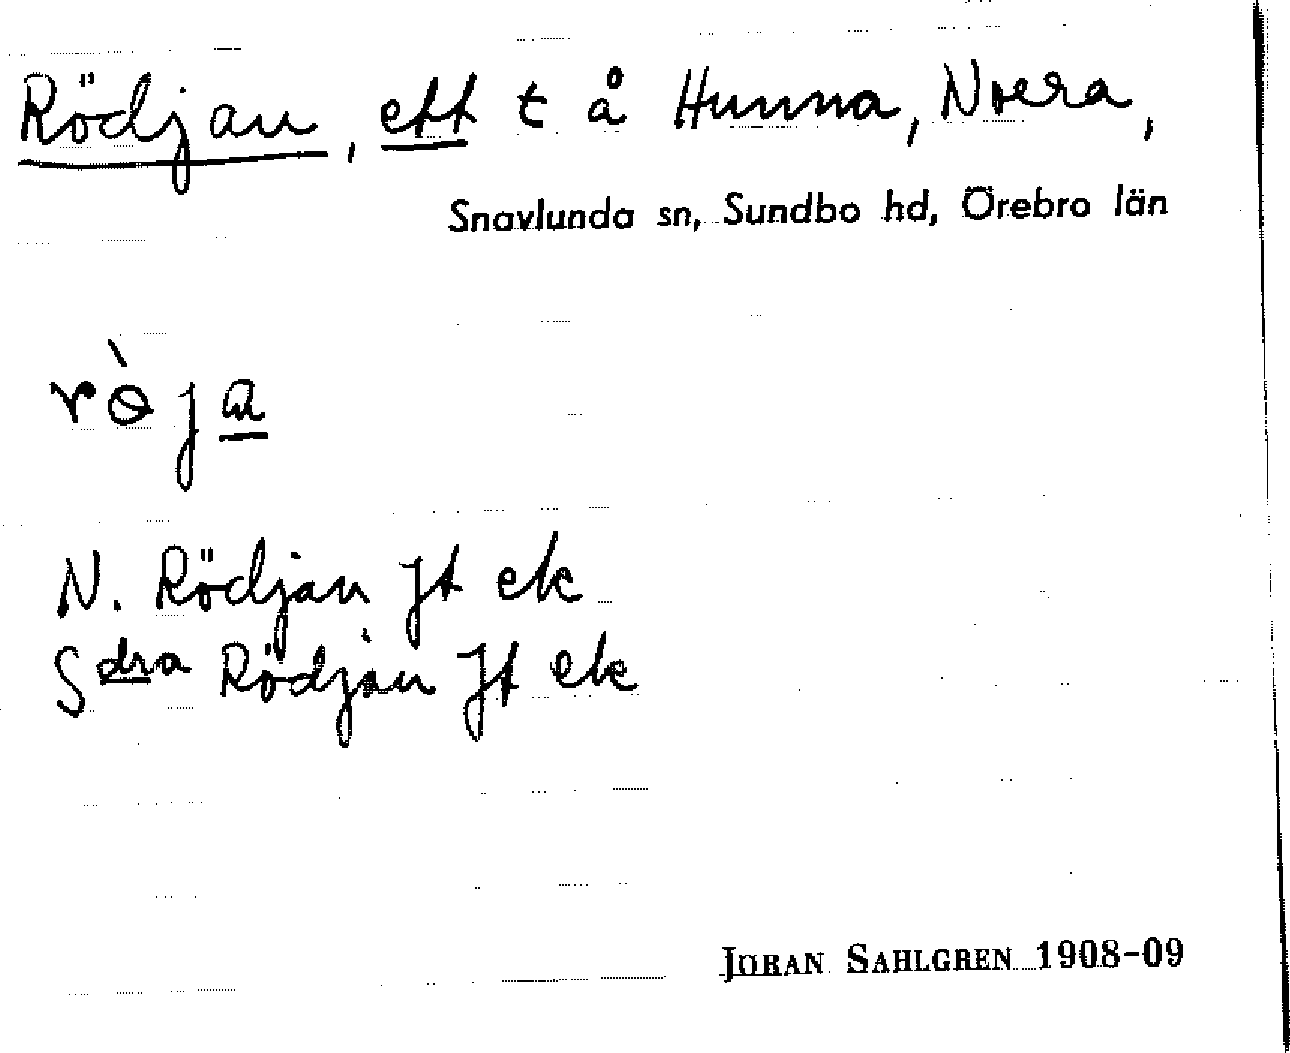 Rödjan, ett t å Hunna, Noera,
Snavlunda sn, Sundbo hd, Örebro län
rø̀ja
N. Rödjan Jt ek
Sdra Rödjan Jt ek
JORAN SAHLGREN 1908-09